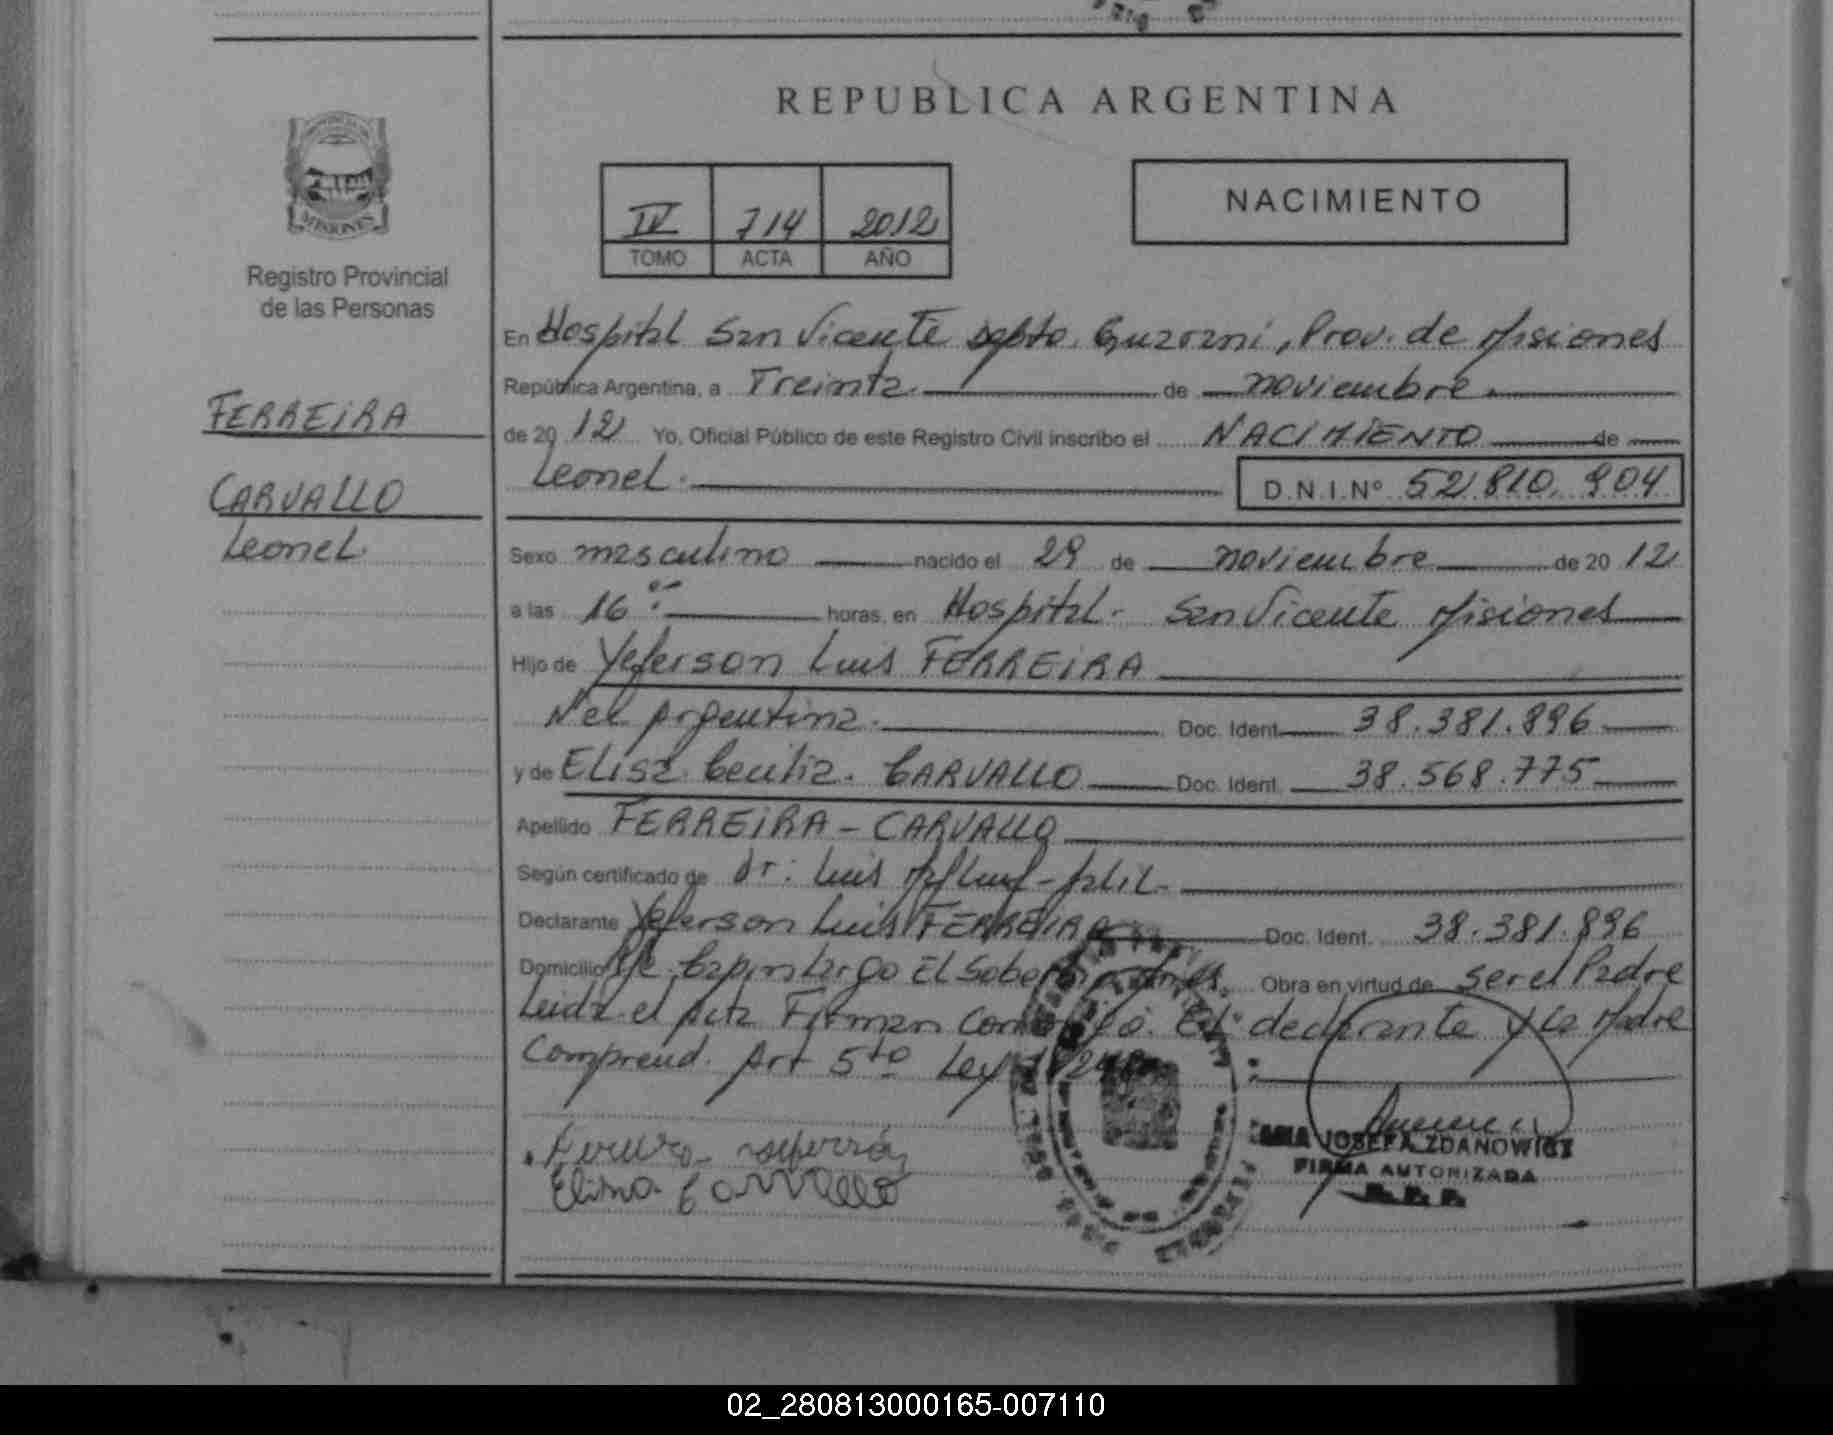 REPUBLICA ARGENTINA
NACIMIENTO
IV 714 2012
TOMO ACTA AÑO
MISIONES
Registro Provincial
de las Personas
FERREIRA
CARVALLO
Leonel
En Hospital San Vicente Depto. Guaraní, Prov. de Misiones
República Argentina, a Treinta de noviembre
de 20 12 Yo, Oficial Público de este Registro Civil inscribo el NACIMIENTO de
Leonel. D.N.I.Nº 52.810.904
Sexo masculino nacido el 29 de noviembre de 20 12
a las 16 horas, en Hospital - San Vicente Misiones
Hijo de Yeferson Luis FERREIRA
Nac Argentina. Doc. Ident. 38.381.896
y de Elisa Cecilia. CARVALLO Doc. Ident. 38.568.775
Apellido FERREIRA - CARVALLO
Según certificado de dr: Luis
Declarante Yeferson Luis FERREIRA Doc. Ident. 38.381.896
Domicilio El Obra en virtud de ser el Padre
Leida el Acta Firman declarante y la Madre
Comprend. Art 5to Ley
Elisa Carvallo
JOSEFA ZDANOWICZ
FIRMA AUTORIZADA
02_280813000165-007110